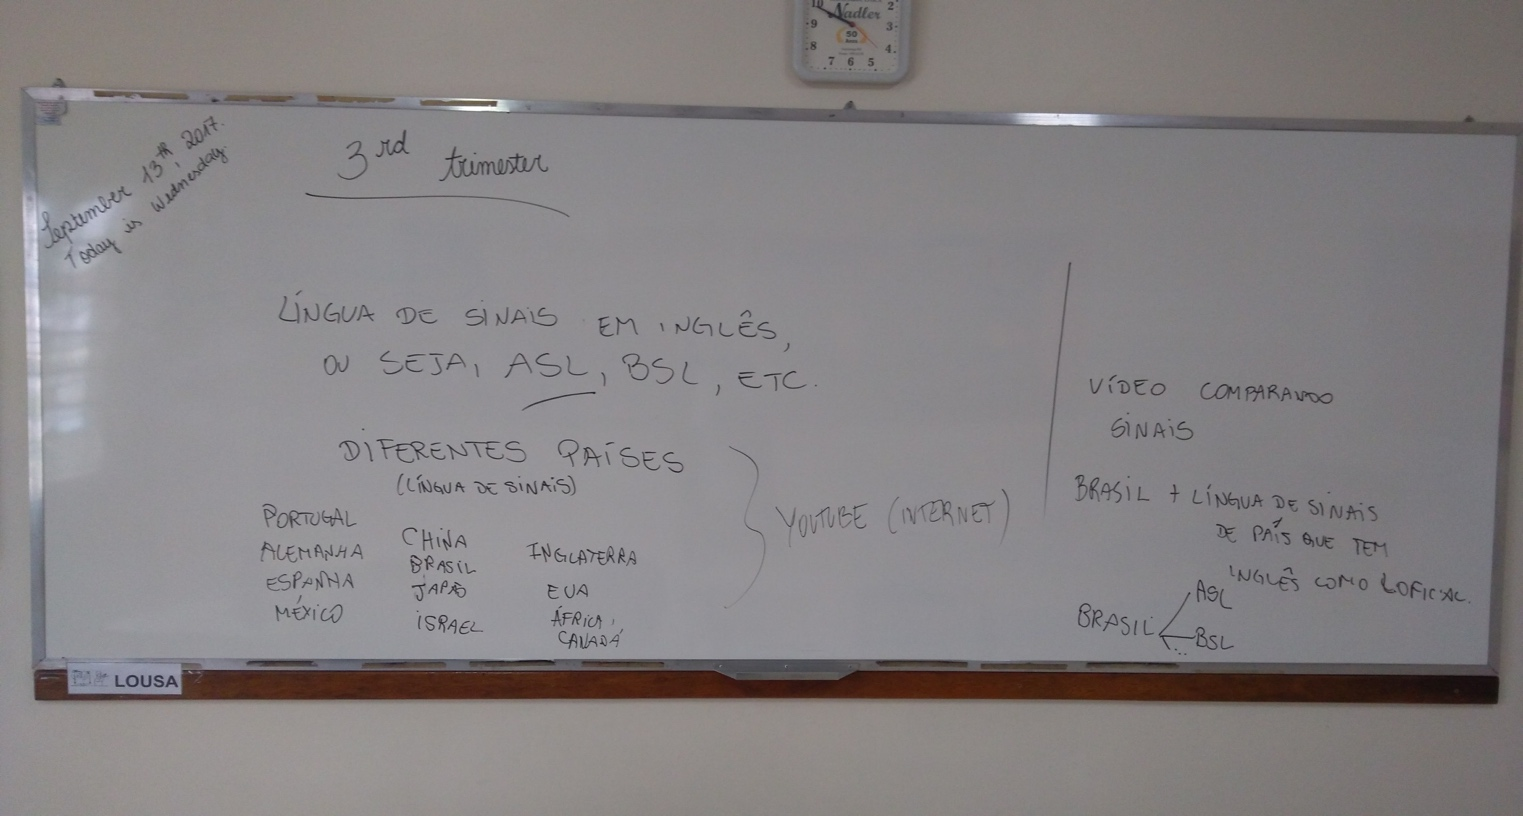 10
2
Nadler
9
3
50
Anos
8
4
7 6 5
September 13th, 2017.
Today is Wednesday.
3rd trimester
LÍNGUA DE SINAIS EM INGLÊS,
OU SEJA, ASL, BSL, ETC.
DIFERENTES PAÍSES
(LÍNGUA DE SINAIS)
PORTUGAL
ALEMANHA
ESPANHA
MÉXICO
CHINA
BRASIL
JAPÃO
ISRAEL
INGLATERRA
EUA
ÁFRICA,
CANADÁ
YOUTUBE (INTERNET)
VÍDEO COMPARANDO
SINAIS
BRASIL + LÍNGUA DE SINAIS
DE PAÍS QUE TEM
INGLÊS COMO L OFICIAL.
BRASIL
ASL
BSL
...
LOUSA